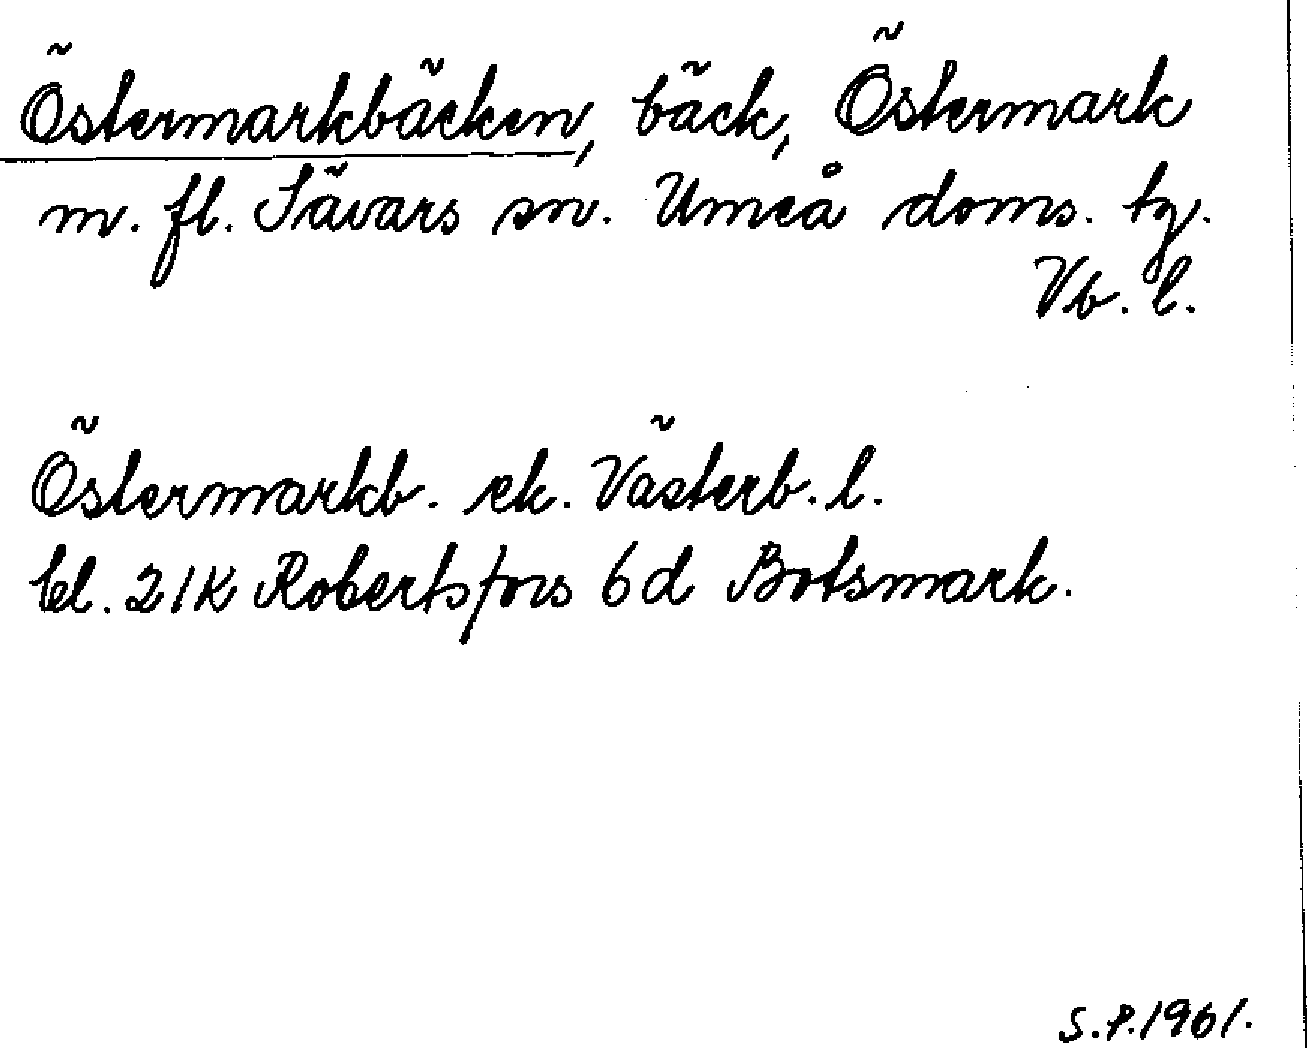 Östermarkbäcken, bäck, Östermark
m. fl. Sävars sn. Umeå doms. tg.
Vb. l.
Östermarkb. ek. Västerb. l.
bl. 21K Robertsfors 6d Botsmark.
S.P. 1961.